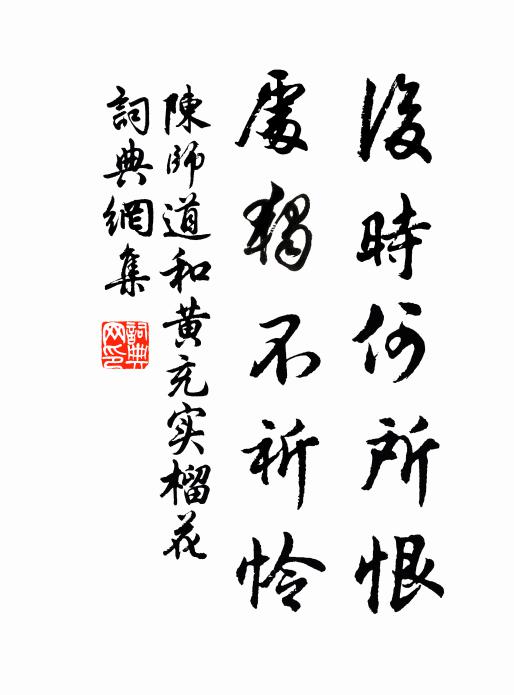 後時何所恨
處獨不祈憐
陳師道和黄充实榴花
詞典網集
詞典網印